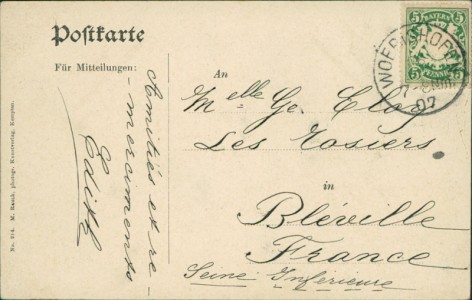 Postkarte
Für Mitteilungen:
Amitiés et re-
-merciments
Edith
Nr. 314. M. Rauch, photogr. Kunstverlag, Kempten.
BAYERN
5 5
5 5
PFENNIG
07
An
Melle Ge.
Les Rosiers
in
Bléville
France
Seine Inférieure